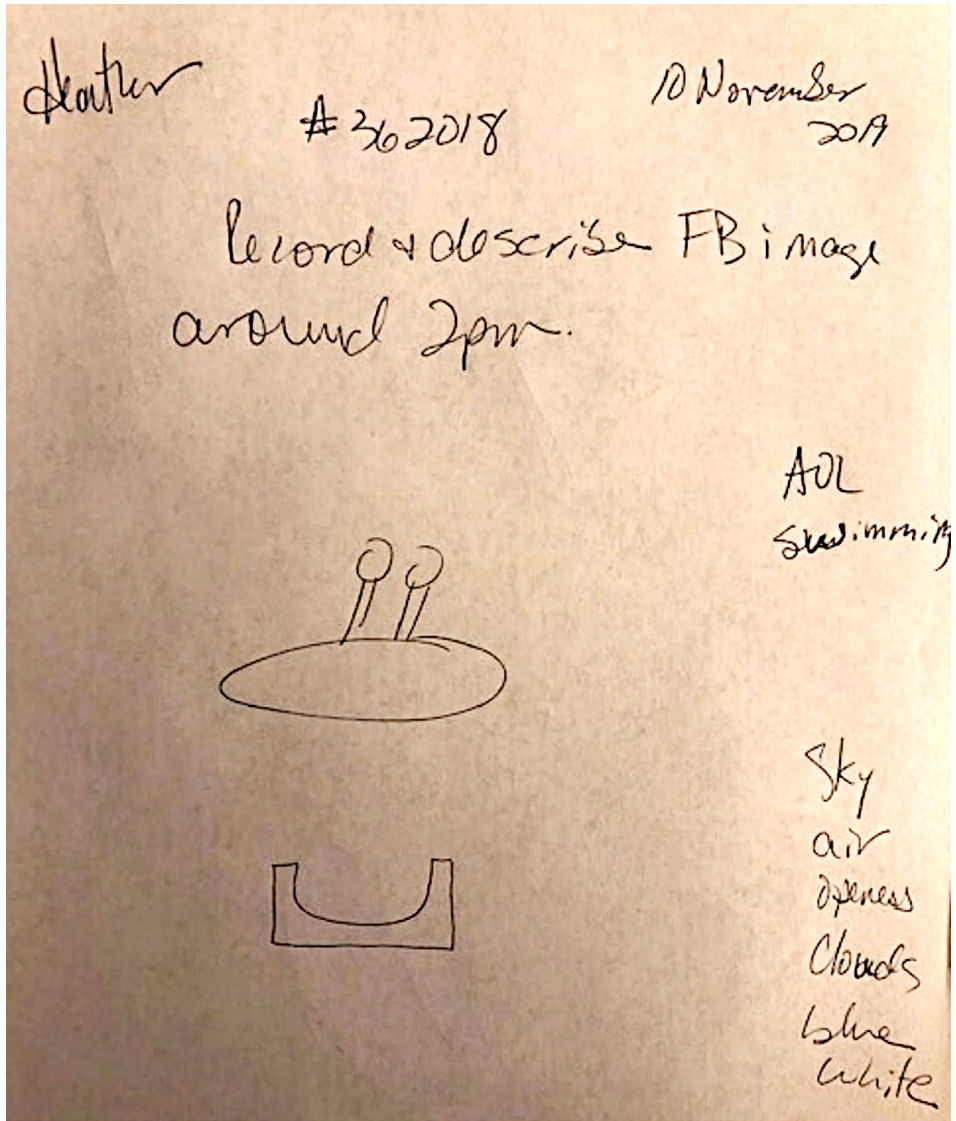 Heather
#362018
10 November
2019
Record & describe FB image
around 2pm.
AOL
Swimming
Sky
air
Openess
Clouds
blue
white